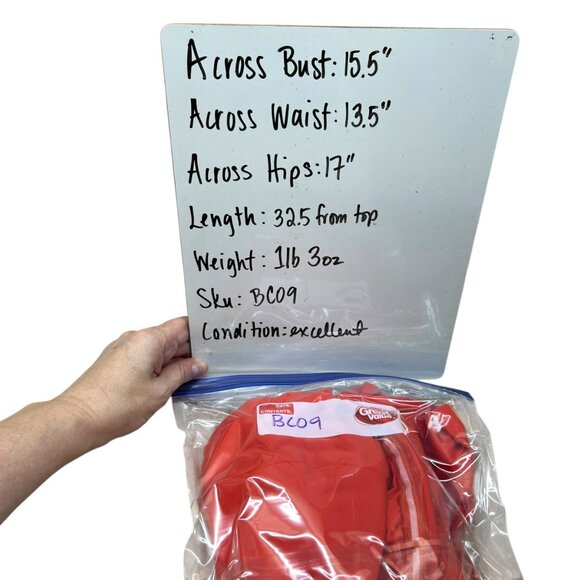 Across Bust: 15.5"
Across Waist: 13.5"
Across Hips: 17"
Length: 32.5 from top
Weight: 1lb 3oz
Sku: BC09
Condition: excellent
DATE:
CONTENTS:
BC09
Great Value